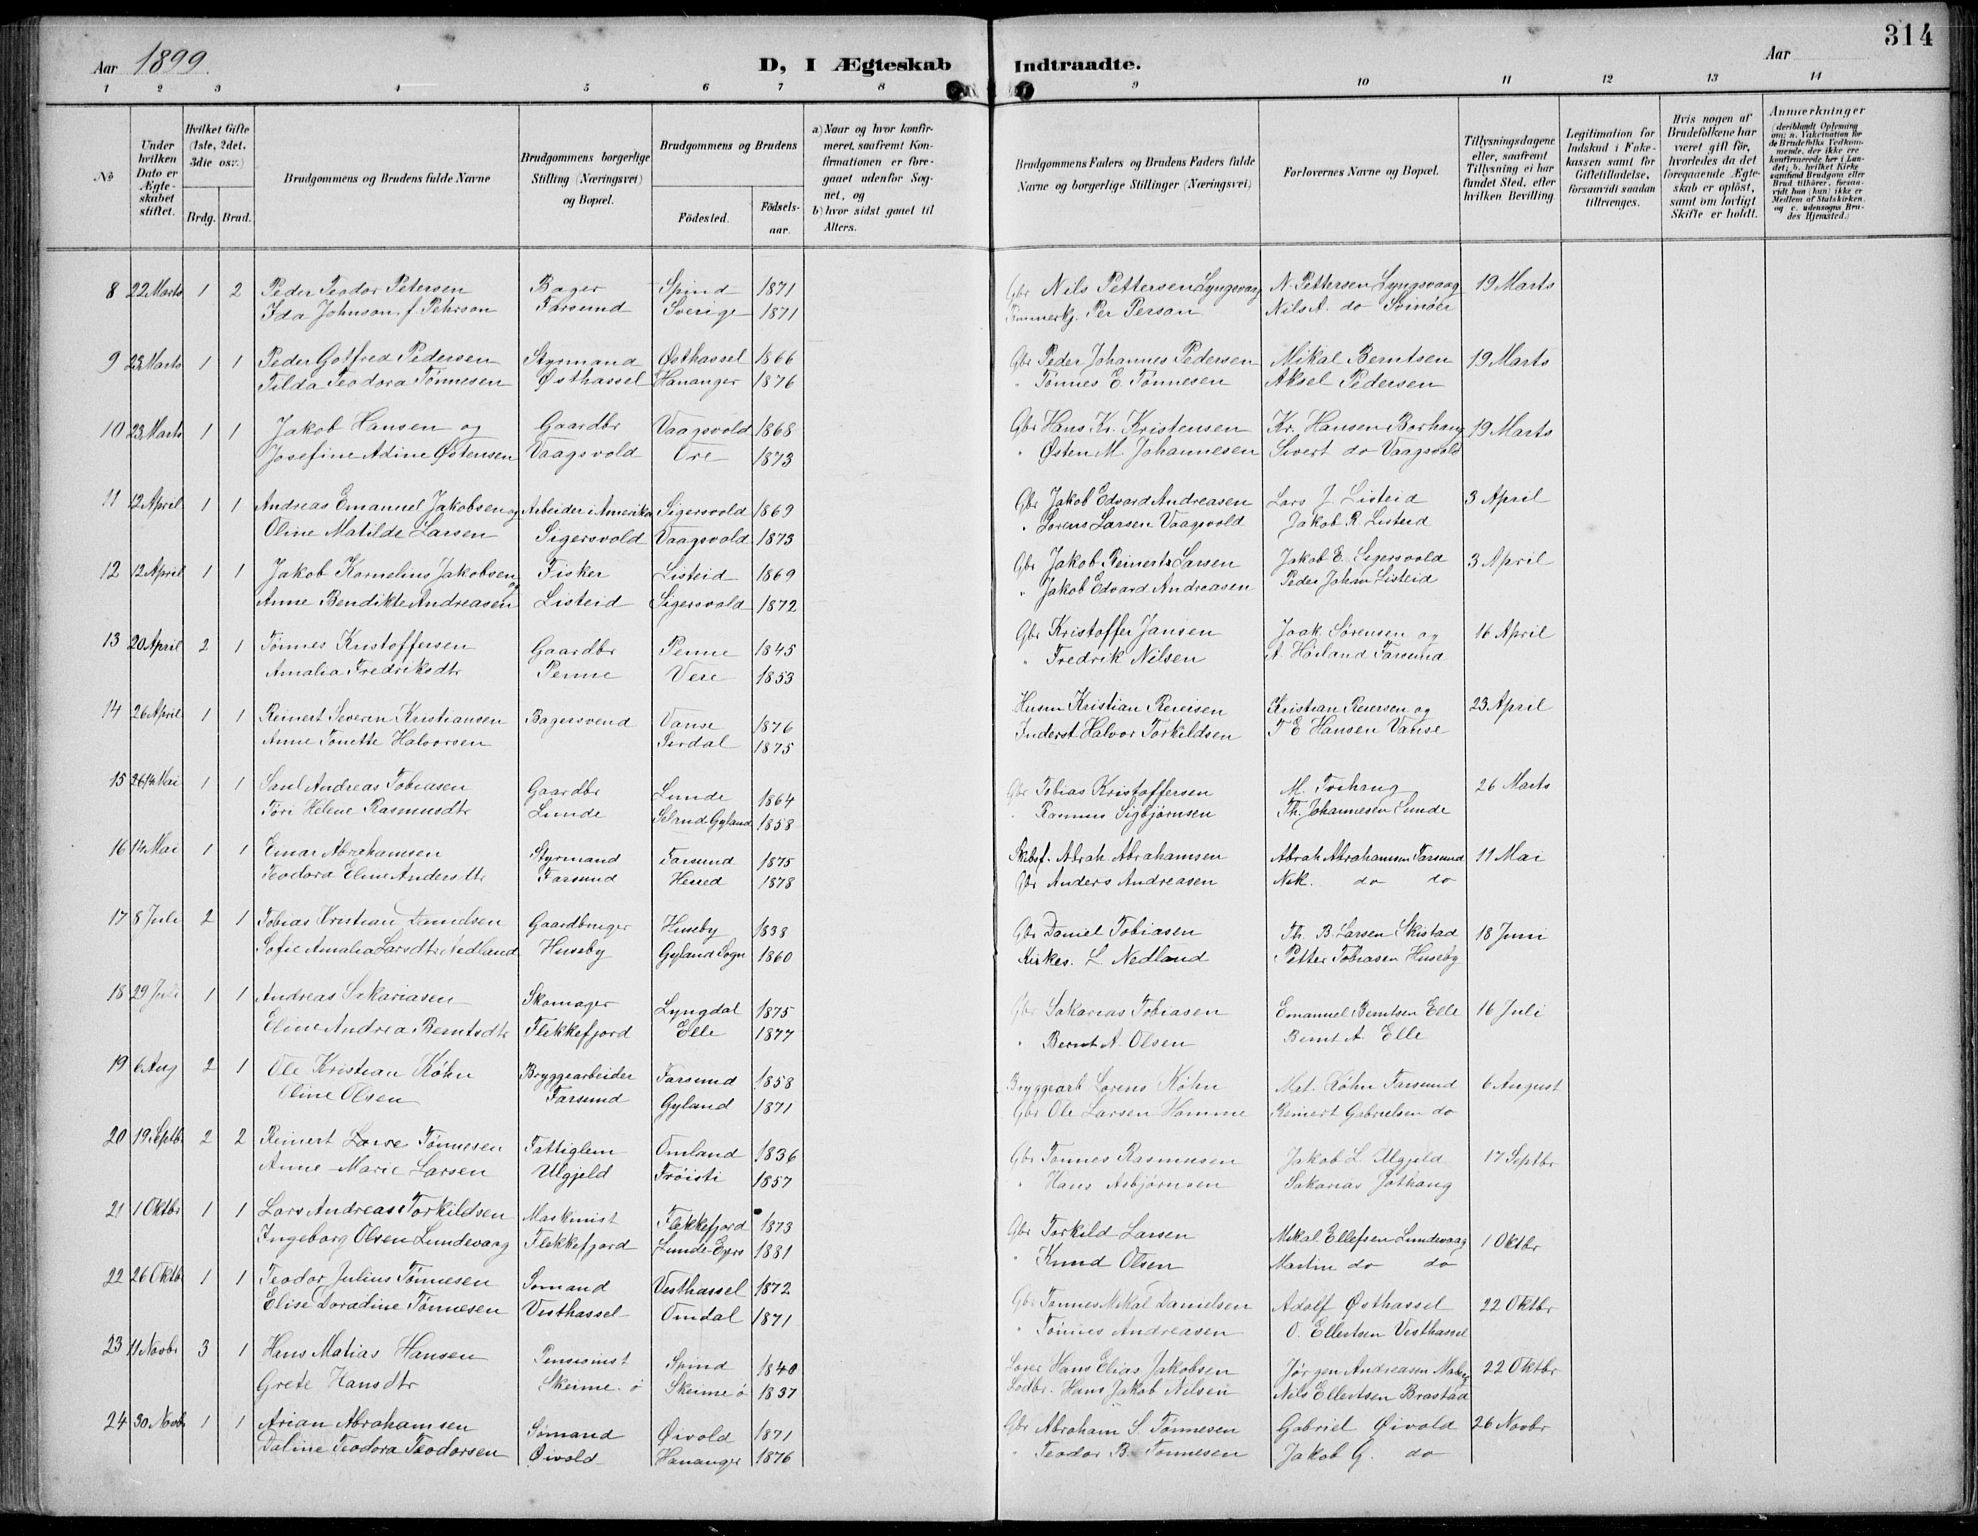 314
Aar 1899.
D, I Ægteskab
Indtraadte.
Aar
1 2 3 4 5 6 7 8 9 10 11 12 13 14
No
Under hvilken Dato er Ægteskabet stiftet.
Hvilket Gifte (1ste, 2det, 3die osv.)
Brdg. Brud.
Brudgommens og Brudens fulde Navne
Brudgommens borgerlige Stilling (Næringsvei) og Bopæl.
Brudgommens og Brudens
Fødested.
Fødselsaar.
a) Naar og hvor konfirmeret, saafremt Konfirmationen er foregaaet udenfor Sognet, og
b) hvor sidst gaaet til Alters.
Brudgommens Faders og Brudens Faders fulde Navne og borgerlige Stillinger (Næringsvei)
Forlovernes Navne og Bopæl.
Tillysningsdagene eller, saafremt Tillysning ei har fundet Sted, efter hvilken Bevilling
Legitimation for Indskud i Enkekassen samt for Giftetilladelse, forsaavidt saadan tiltrænges.
Hvis nogen af Brudefolkene har været gift før, hvorledes da det foregaaende Ægteskab er opløst, samt om lovligt Skifte er holdt.
Anmærkninger
(deriblandt Oplysning om: a. Vakcination for de Brudefolks Vedkommende, der ikke ere konfirmerede her i Landet; b. hvilket Kirkesamfund Brudgom eller Brud tilhører, forsaavidt han (hun) ikke er Medlem af Statskirken, og c. udensogns Brudes Hjemsted.)
8 22 Marts 1 2 Peder Teodor Petersen Bager Spind 1871 Gbr Nils Pettersen Lyngsvaag N. Pettersen Lyngsvaag 19 Marts
Ida Johnson f. Pehrson Farsund Sverige 1871 Tømmerkj. Per Person Nils A. do Svinøer
9 23 Marts 1 1 Peder Gotfred Pedersen Styrmand Østhassel 1866 Gbr Peder Johannes Pedersen Mikal Berntsen 19 Marts
Tilda Teodora Tønnesen Østhassel Hananger 1876 " Tønnes E. Tønnesen Aksel Pedersen
10 23 Marts 1 1 Jakob Hansen og Gaardbr Vaagsvold 1868 Gbr Hans Kr. Kristensen Kr. Hansen Borhaug 19 Marts
Josefine Adine Østensen Vaagsvold Ore 1873 " Østen M. Johannesen Sivert do Vaagsvold
11 12 April 1 1 Andreas Emanuel Jakobsen og Arbeider i Amerika Sigersvold 1869 Gbr Jakob Edvard Andreasen Lars J. Listeid 3 April
Oline Matilde Larsen Sigersvold Vaagsvold 1873 " Lorens Larsen Vaagsvold Jakob R. Listeid
12 12 April 1 1 Jakob Kornelius Jakobsen og Fisker Listeid 1869 Gbr Jakob Reinerts Larsen Jakob E. Sigersvold 3 April
Anne Bendikte Andreasen Listeid Sigersvold 1872 " Jakob Edvard Andreasen Peder Johan Listeid
13 20 April 2 1 Tønnes Kristoffersen Gaardbr Penne 1845 Gbr Kristoffer Jansen Joak Sørensen og 16 April
Amalia Fredriksdtr Penne Vere 1853 " Fredrik Nilsen A. Høiland Farsund
14 26 April 1 1 Reinert Severin Kristiansen Bagersvend Vanse 1876 Husm Kristian Reiersen Kristian Reiersen og 23 April
Anne Tonette Halvorsen Sirdal 1875 Inderst Halvor Torkildsen T E Hansen Vanse
15 14 Mai 1 1 Saul Andreas Tobiasen Gaardbr Lunde 1864 Gbr Tobias Kristoffersen M. 26 Marts
Tori Helene Rasmusdtr Lunde Gyland 1858 " Rasmus Sigbjørnsen Th. Johannesen Lunde
16 14 Mai 1 1 Einar Abrahamsen Styrmand Farsund 1875 Skibsf. Abrah Abrahamsen Abrah Abrahamsen Farsund 11 Mai
Teodora Eline Andersdtr Farsund Herred 1878 Gbr Anders Andreasen Nik. do do
17 8 Juli 2 1 Tobias Kristian Danielsen Gaardbruger Huseby 1838 Gbr Daniel Tobiasen Th. B. Larsen Skistad 18 Juni
Sofie Amalia Larsdtr Nedland Huseby Gyland Sogn 1860 Kirkes. L. Nedland Petter Tobiasen Huseby
18 29 Juli 1 1 Andreas Sakariasen Skomager Lyngdal 1875 Gbr Sakarias Tobiasen Emanuel Berntsen Elle 16 Juli
Eline Andrea Berntsdtr Flekkefjord Elle 1877 " Bernt A. Olsen Bernt A. Elle
19 6 Aug 2 1 Ole Kristian Køhn Bryggearbeider Farsund 1858 Bryggearb Lorens Køhn Mat. Køhn Farsund 6 August
Oline Olsen Farsund Gyland 1871 Gbr Ole Larsen Homme Reinert Gabrielsen do
20 19 Septbr 2 2 Reinert Tønnesen Fattiglem Omland 1836 Gbr Tønnes Rasmusen Jakob L. Ulgjeld 17 Septbr
Anne Marie Larsen Ulgjeld Frøisti 1857 " Hans Asbjørnsen Sakarias Jøthaug
21 1 Oktbr 1 1 Lars Andreas Torkildsen Maskinist Flekkefjord 1873 Gbr Torkild Larsen Mikal Ellefsen Lundevaag 1 Oktbr
Ingeborg Olsen Lundevaag Flekkefjord Lunde Egers 1881 " Knud Olsen Martin do do
22 26 Oktb 1 1 Teodor Julius Tønnesen Sømand Vesthassel 1872 Gbr Tønnes Mikal Danielsen Adolf Østhassel 22 Oktbr
Elise Doradine Tønnesen Vesthassel Omdal 1871 " Tønnes Andreasen O. Ellertsen Vesthassel
23 11 Novbr 3 1 Hans Matias Hansen Pensionist Spind 1840 Hans Elias Jakobsen Jørgen Andreasen 22 Oktbr
Grete Hansdtr Skeime ø Skeime ø 1837 Hans Jakob Nilsen Nils Ellertsen Brastad
24 30 Novb 1 1 Arian Abrahamsen Sømand Øivold 1871 Gbr Abraham S. Tønnesen Gabriel Øivold 26 Novbr
Daline Teodora Teodorsen Øivold Hananger 1876 " Teodor B. Tønnesen Jakob G. do